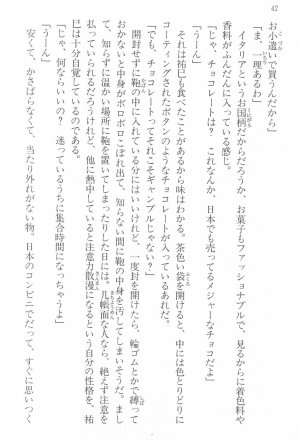 42
お小遣いで買うんだから」
「ま、一理あるわ」
イタリアというお国柄だからだろうか、お菓子もファッショナブルで、見るからに着色料や
香料がふんだんに入っている感じ。
「じゃ、チョコレートは？　これなんか、日本でも売ってるメジャーなチョコだよ」
「うーん」
それは祐巳も食べたことがあるから味はわかる。茶色い袋を開けると、中には色とりどりに
コーティングされたボタンのようなチョコレートが入っているあれだ。
「でも、チョコレートってそれこそギャンブルじゃない？」
開封せずに鞄の中に入れている分にはいいけれど、一度封を開けたら、輪ゴムとかで縛って
おかないと中身がボロボロこぼれ出て、知らない間に鞄の中身を汚してしまいそうだ。まし
て、知らずに温かい場所に鞄を置いてしまったりした日には。几帳面な人なら、絶えず注意を
払っていられるだろうけれど、他に熱中していると注意力散漫になるという自分の性格を、祐
巳は十分自覚しているのである。
「じゃ、何ならいいの？　迷っているうちに集合時間になっちゃうよ」
「うーん」
安くて、かさばらなくて、当たり外れがない物。日本のコンビニでだって、すぐに思いつく